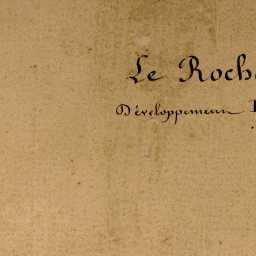 Le Roch
Développement